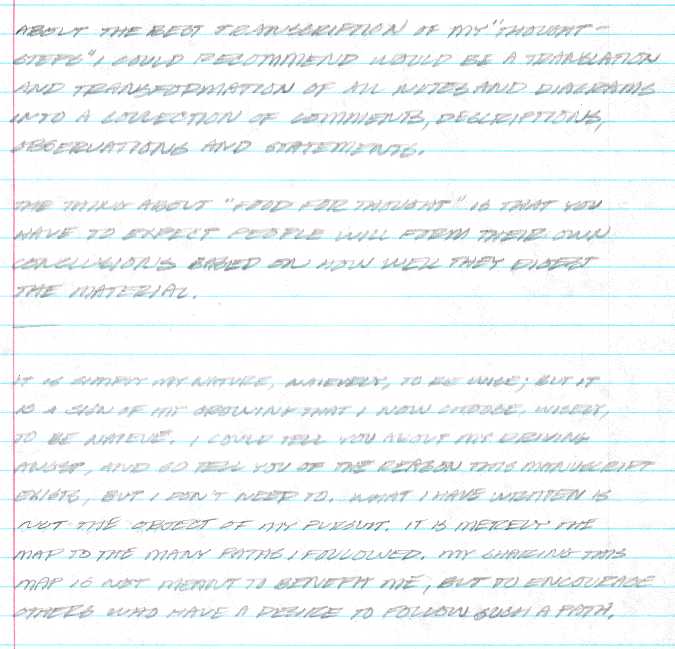 ABOUT THE BEST TRANSCRIPTION OF MY "THOUGHT-
STEPS" I COULD RECOMMEND WOULD BE A TRANSLATION
AND TRANSFORMATION OF ALL NOTES AND DIAGRAMS
INTO A COLLECTION OF COMMENTS, DESCRIPTIONS,
OBSERVATIONS AND STATEMENTS.
THE THING ABOUT "FOOD FOR THOUGHT" IS THAT YOU
HAVE TO EXPECT PEOPLE WILL FORM THEIR OWN
CONCLUSIONS BASED ON HOW WELL THEY DIGEST
THE MATERIAL.
IT IS SIMPLY MY NATURE, NAIEVELY, TO BE WISE; BUT IT
IS A SIGN OF MY GROWING THAT I NOW CHOOSE, WISELY,
TO BE NAIEVE. I COULD TELL YOU ABOUT MY DRIVING
ANGST, AND SO TELL YOU OF THE REASON THIS MANUSCRIPT
EXISTS, BUT I DON'T NEED TO. WHAT I HAVE WRITTEN IS
NOT THE OBJECT OF MY PURSUIT. IT IS MERELY THE
MAP TO THE MANY PATHS I FOLLOWED. MY SHARING THIS
MAP IS NOT MEANT TO BENEFIT ME, BUT TO ENCOURAGE
OTHERS WHO HAVE A DESIRE TO FOLLOW SUCH A PATH.